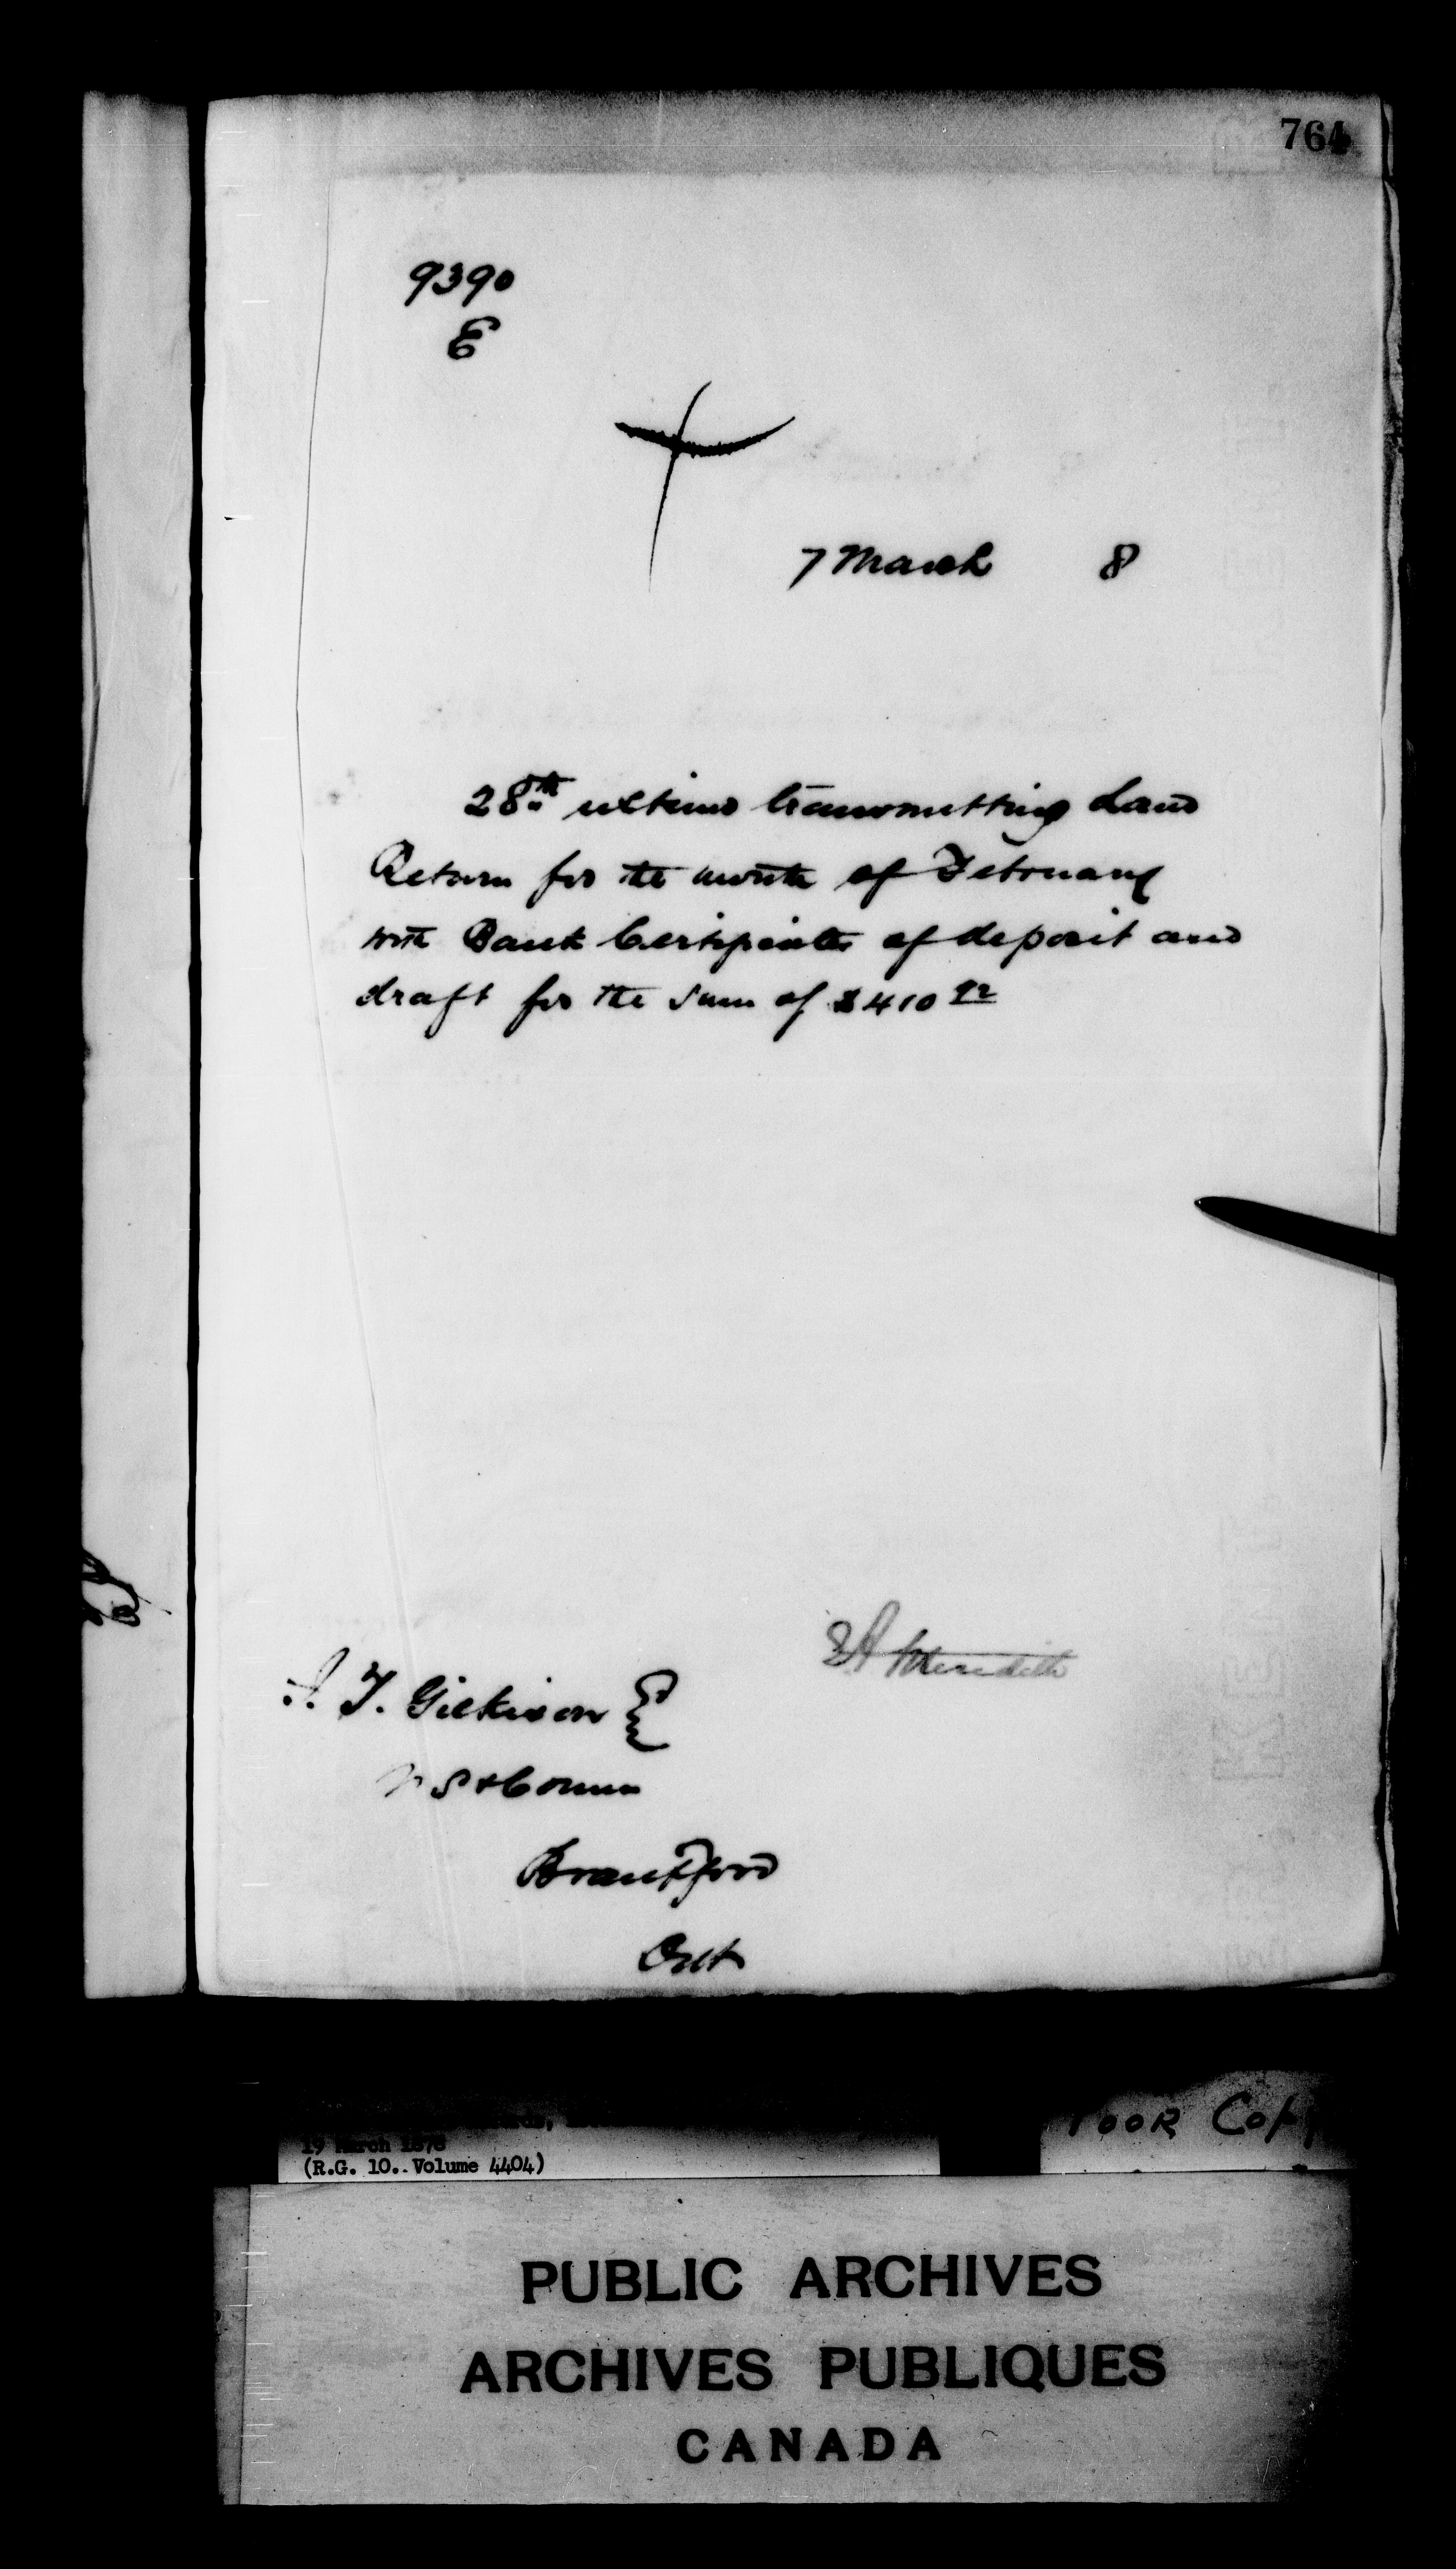 764
9390
E
7 March 8
28th ultimo transmitting Land
Return for the month of February
with Bank Certificates of deposit and
draft for the sum of $410 92
E A Meredith
J. T. Gilkison E
V S & Comm
Brantford
Ont
19 March 1878
(R.G. 10. Volume 4404)
POOR Copy
PUBLIC ARCHIVES
ARCHIVES PUBLIQUES
CANADA